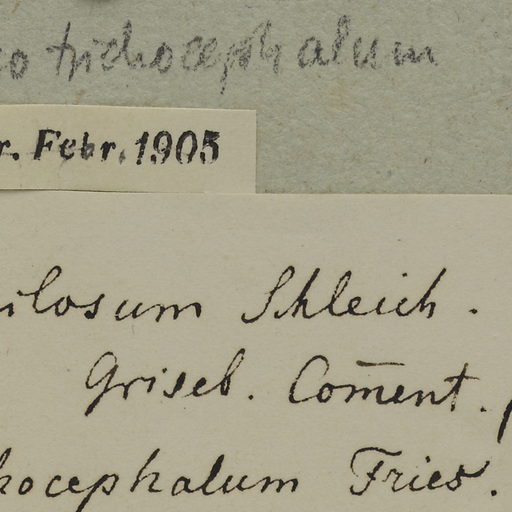 o trichocephalum
r. Febr. 1905
ilosum Schleich.
Griseb. Com̄ent.
hocephalum Fries.